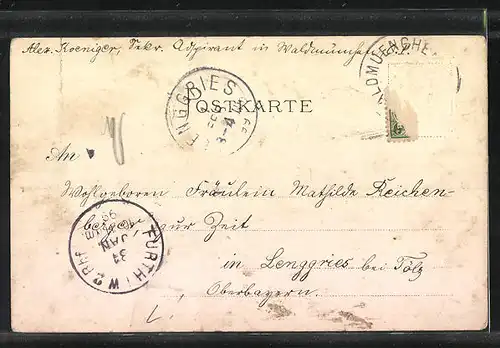 Alex. Koeniger, Sekr. Adspirant in Waldmünchen
WALDMUENCHEN
LENGGRIES
POSTKARTE
An
Wohlgeboren Fräulein Mathilde Reichen-
berger zur Zeit
in Lenggries bei Tölz
Oberbayern.
FURTH I W
31
JAN
99